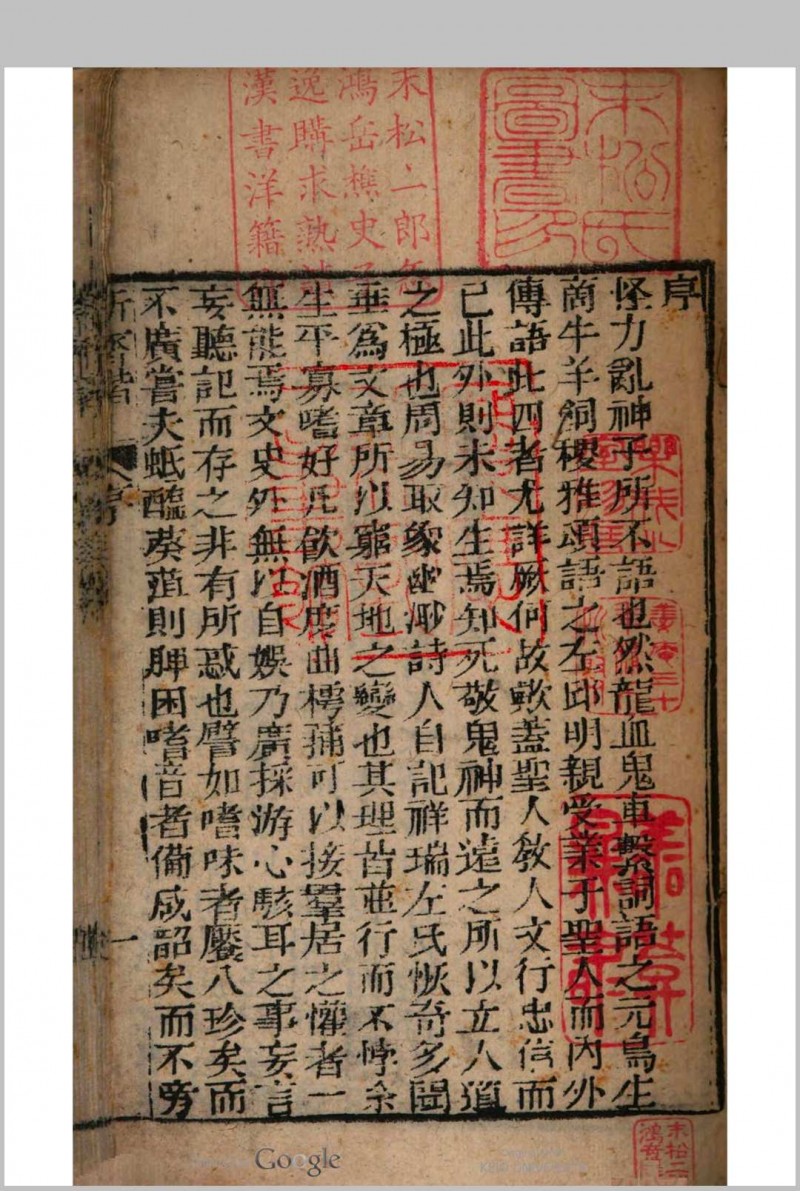 序
怪力亂神子所不語也然龍血鬼車繫詞語之元鳥生
商牛羊飼稷雅頌語之左邱明親受業于聖人而內外
傳語此四者尤詳厥何故歟蓋聖人教人文行忠信而
已此外則未知生焉知死敬鬼神而遠之所以立人道
之極也周易取象幽渺詩人自記祥瑞左氏恢奇多聞
垂為文章所以窮天地之變也其理皆並行而不悖余
生平寡嗜好凡飲酒度曲樗蒱可以接羣居之懽者一
無能焉文史外無以自娛乃廣採游心駭耳之事妄言
妄聽記而存之非有所惑也譬如嗜味者饜八珍矣而
不廣嘗夫蚔醢葵菹則脾困嗜音者備咸韶矣而不旁
新齊諧
序
一
末松氏
圖書印
末松二郎
鴻岳樵史
逸購求熟
漢書洋籍
Google
KEIO UNIVERSITY